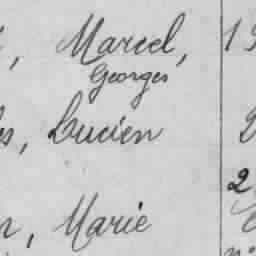 , Marcel, 19
Georges
s, Lucien 2
2
n, Marie